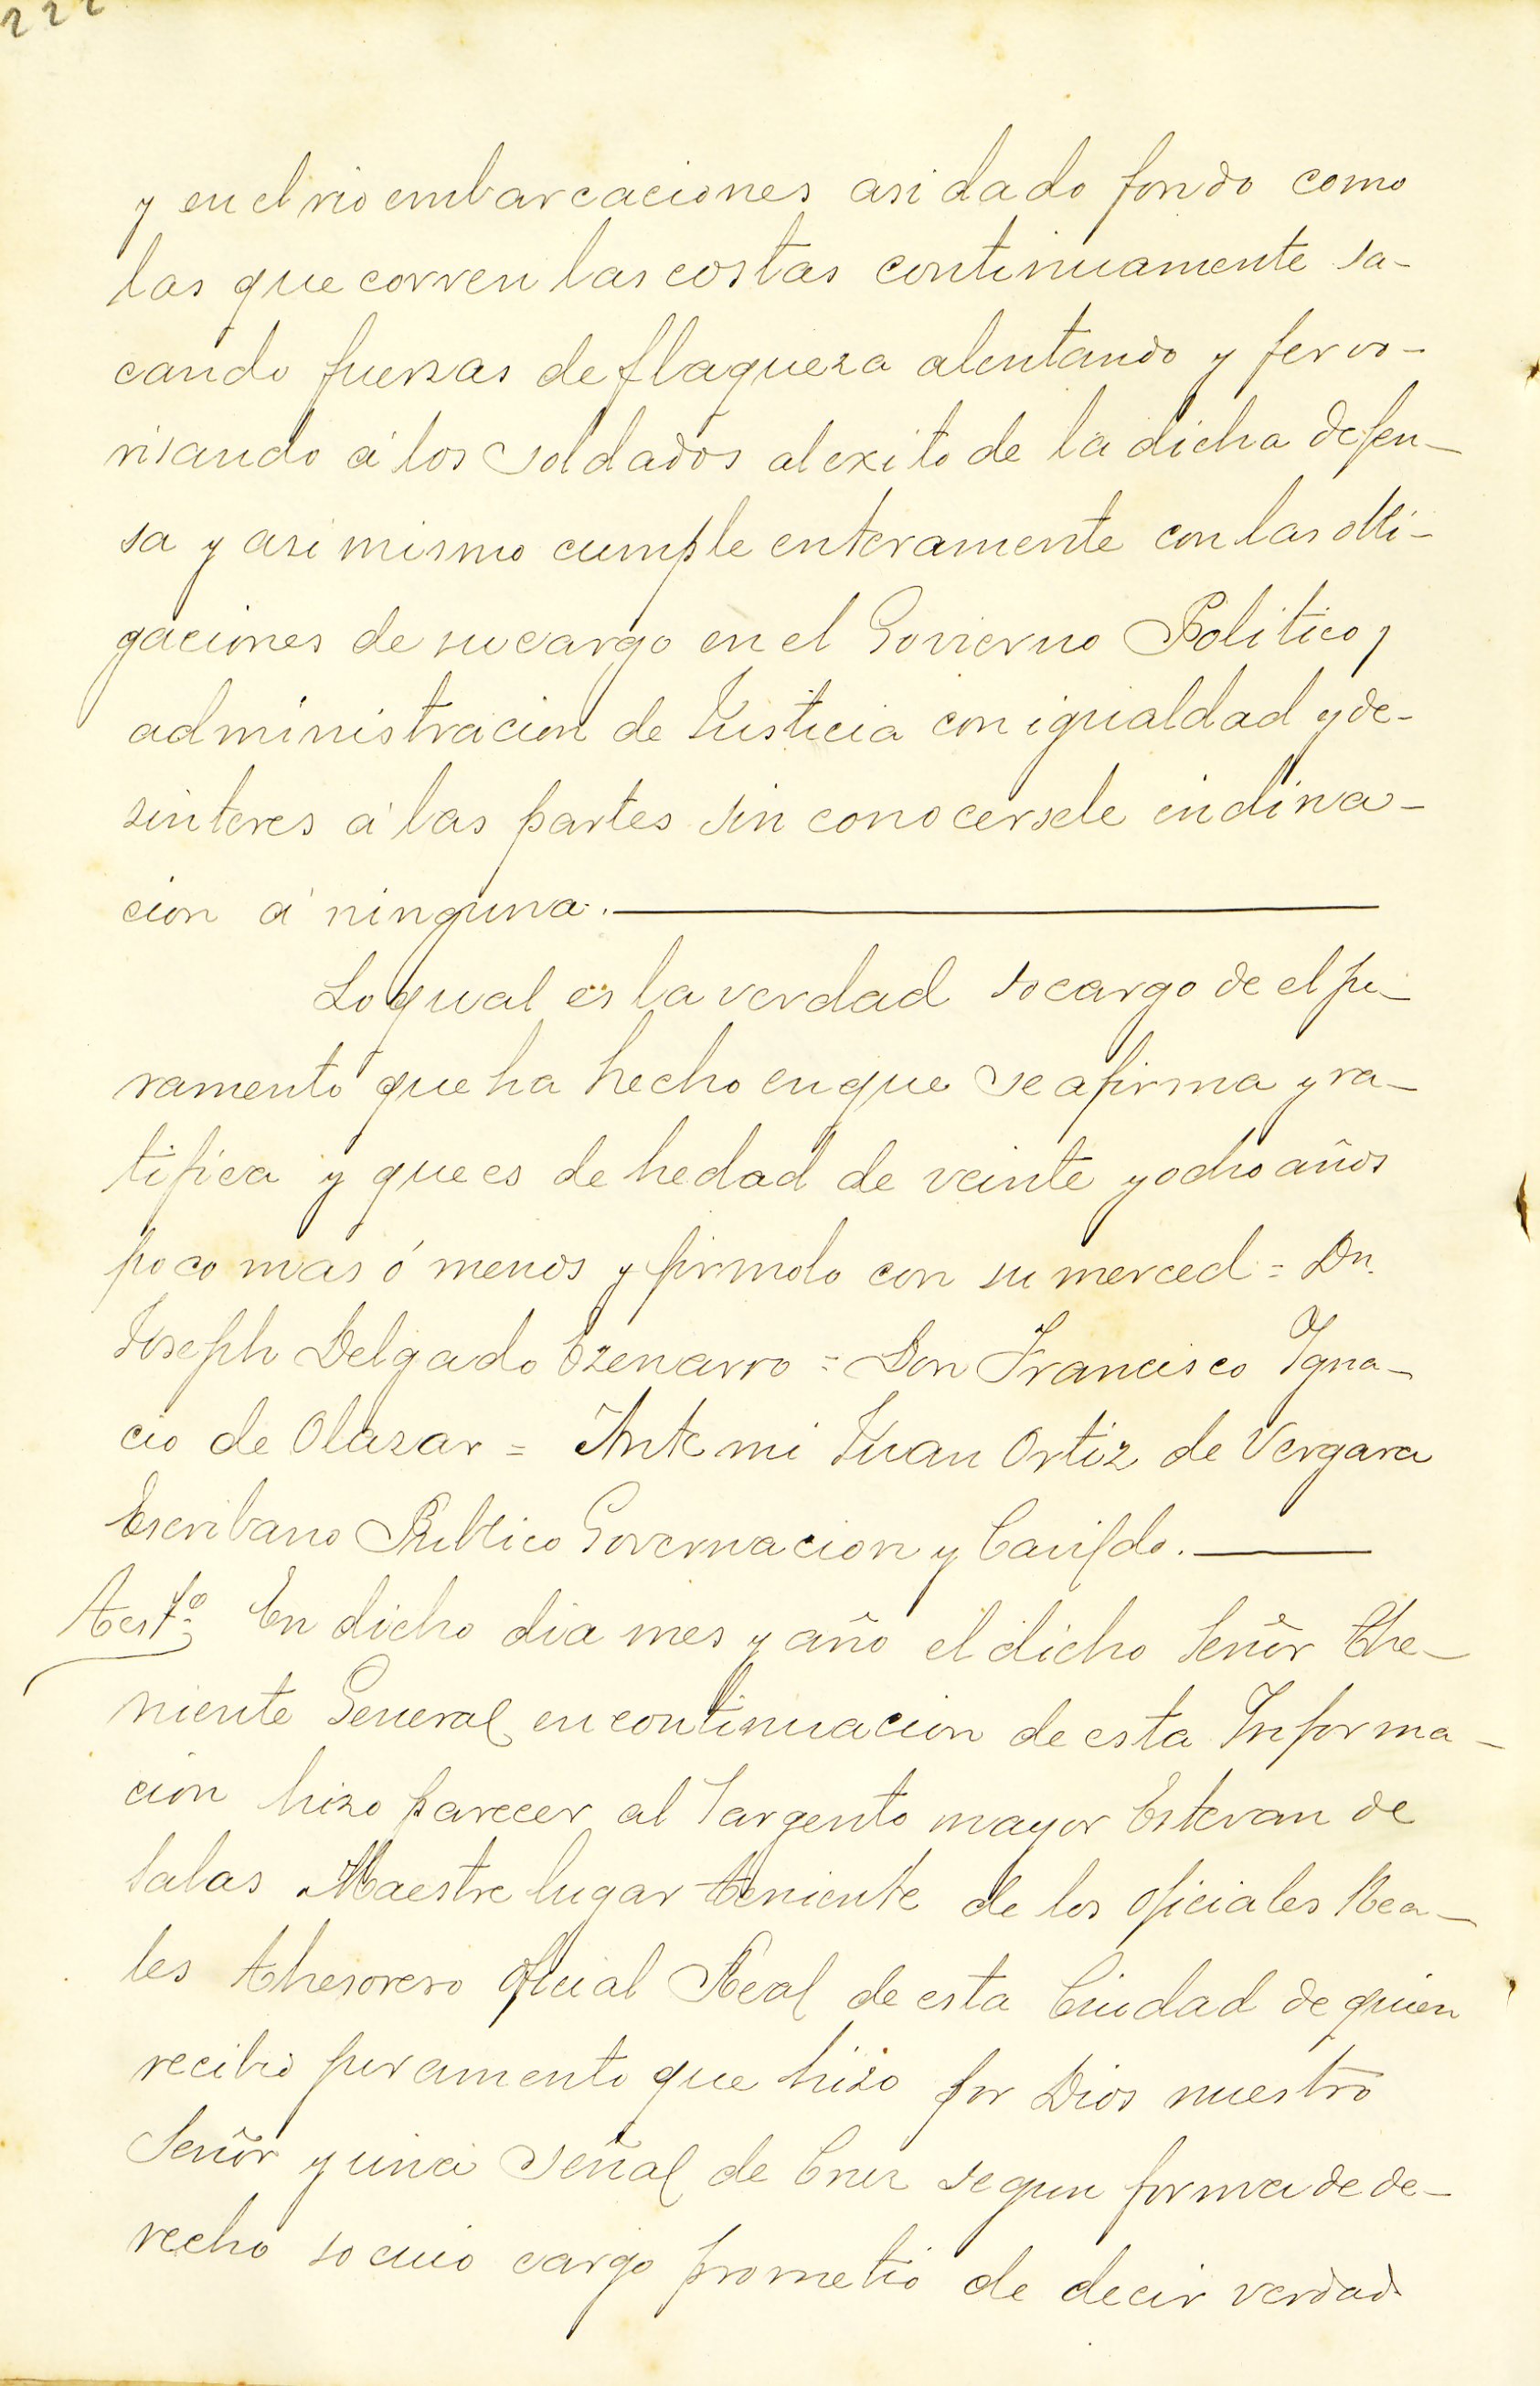 222
y en el rio embarcaciones asi dado fondo como
las que corren las costas continuamente sa-
cando fuersas de flaqueza alentando y fervo-
risando á los soldados al exito de la dicha defen-
sa y asi mismo cumple enteramente con las obli-
gaciones de su cargo en el Govierno Politico y
administracion de Justicia con igualdad y de-
sinteres á las partes sin conocersele indina-
cion á ninguna.
Lo qual es la verdad so cargo de el ju-
ramento que ha hecho en que se afirma y ra-
tifica y que es de hedad de veinte y ocho años
poco mas ó menos y firmolo con su merced = Dn.
Joseph Delgado Ozenarro = Don Francisco Igna-
cio de Olazar = Ante mi Juan Ortiz de Vergara
Escribano Publico Governacion y Cavildo.
Test.º En dicho dia mes y año el dicho Señor The-
niente General en continuacion de esta Informa-
cion hizo parecer al Sargento mayor Estevan de
Salas Maestre lugar teniente de los oficiales Rea-
les Thesorero oficial Real de esta Ciudad de quien
recibio juramento que hizo por Dios nuestro
Señor y una señal de Cruz segun forma de de-
recho so cuio cargo prometió de decir verdad